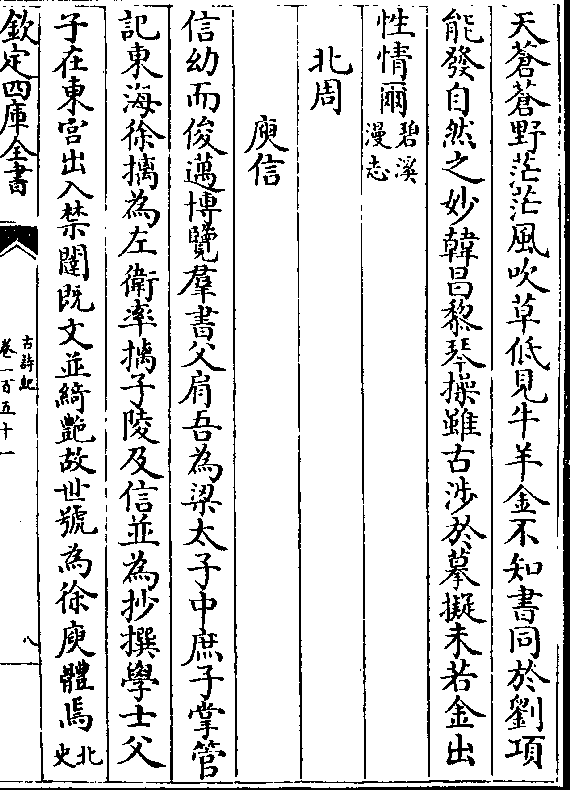 天蒼蒼野茫茫風吹草低見牛羊金不知書同於劉項
能發自然之妙韓昌黎琴操雖古涉於摹擬未若金出
性情爾碧溪漫志
北周
庾信
信幼而俊邁博覽羣書父肩吾為梁太子中庶子掌管
記東海徐摛為左衛率摛子陵及信並為抄撰學士父
子在東宮出入禁闥既文並綺艷故世號為徐庾體焉北史
欽定四庫全書
古詩紀
卷一百五十一
八